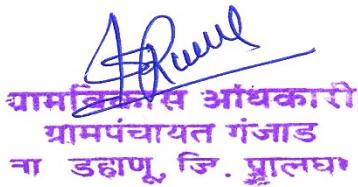 ग्रामविकास अधिकारी
ग्रामपंचायत गंजाड
ता डहाणू, जि. पालघर